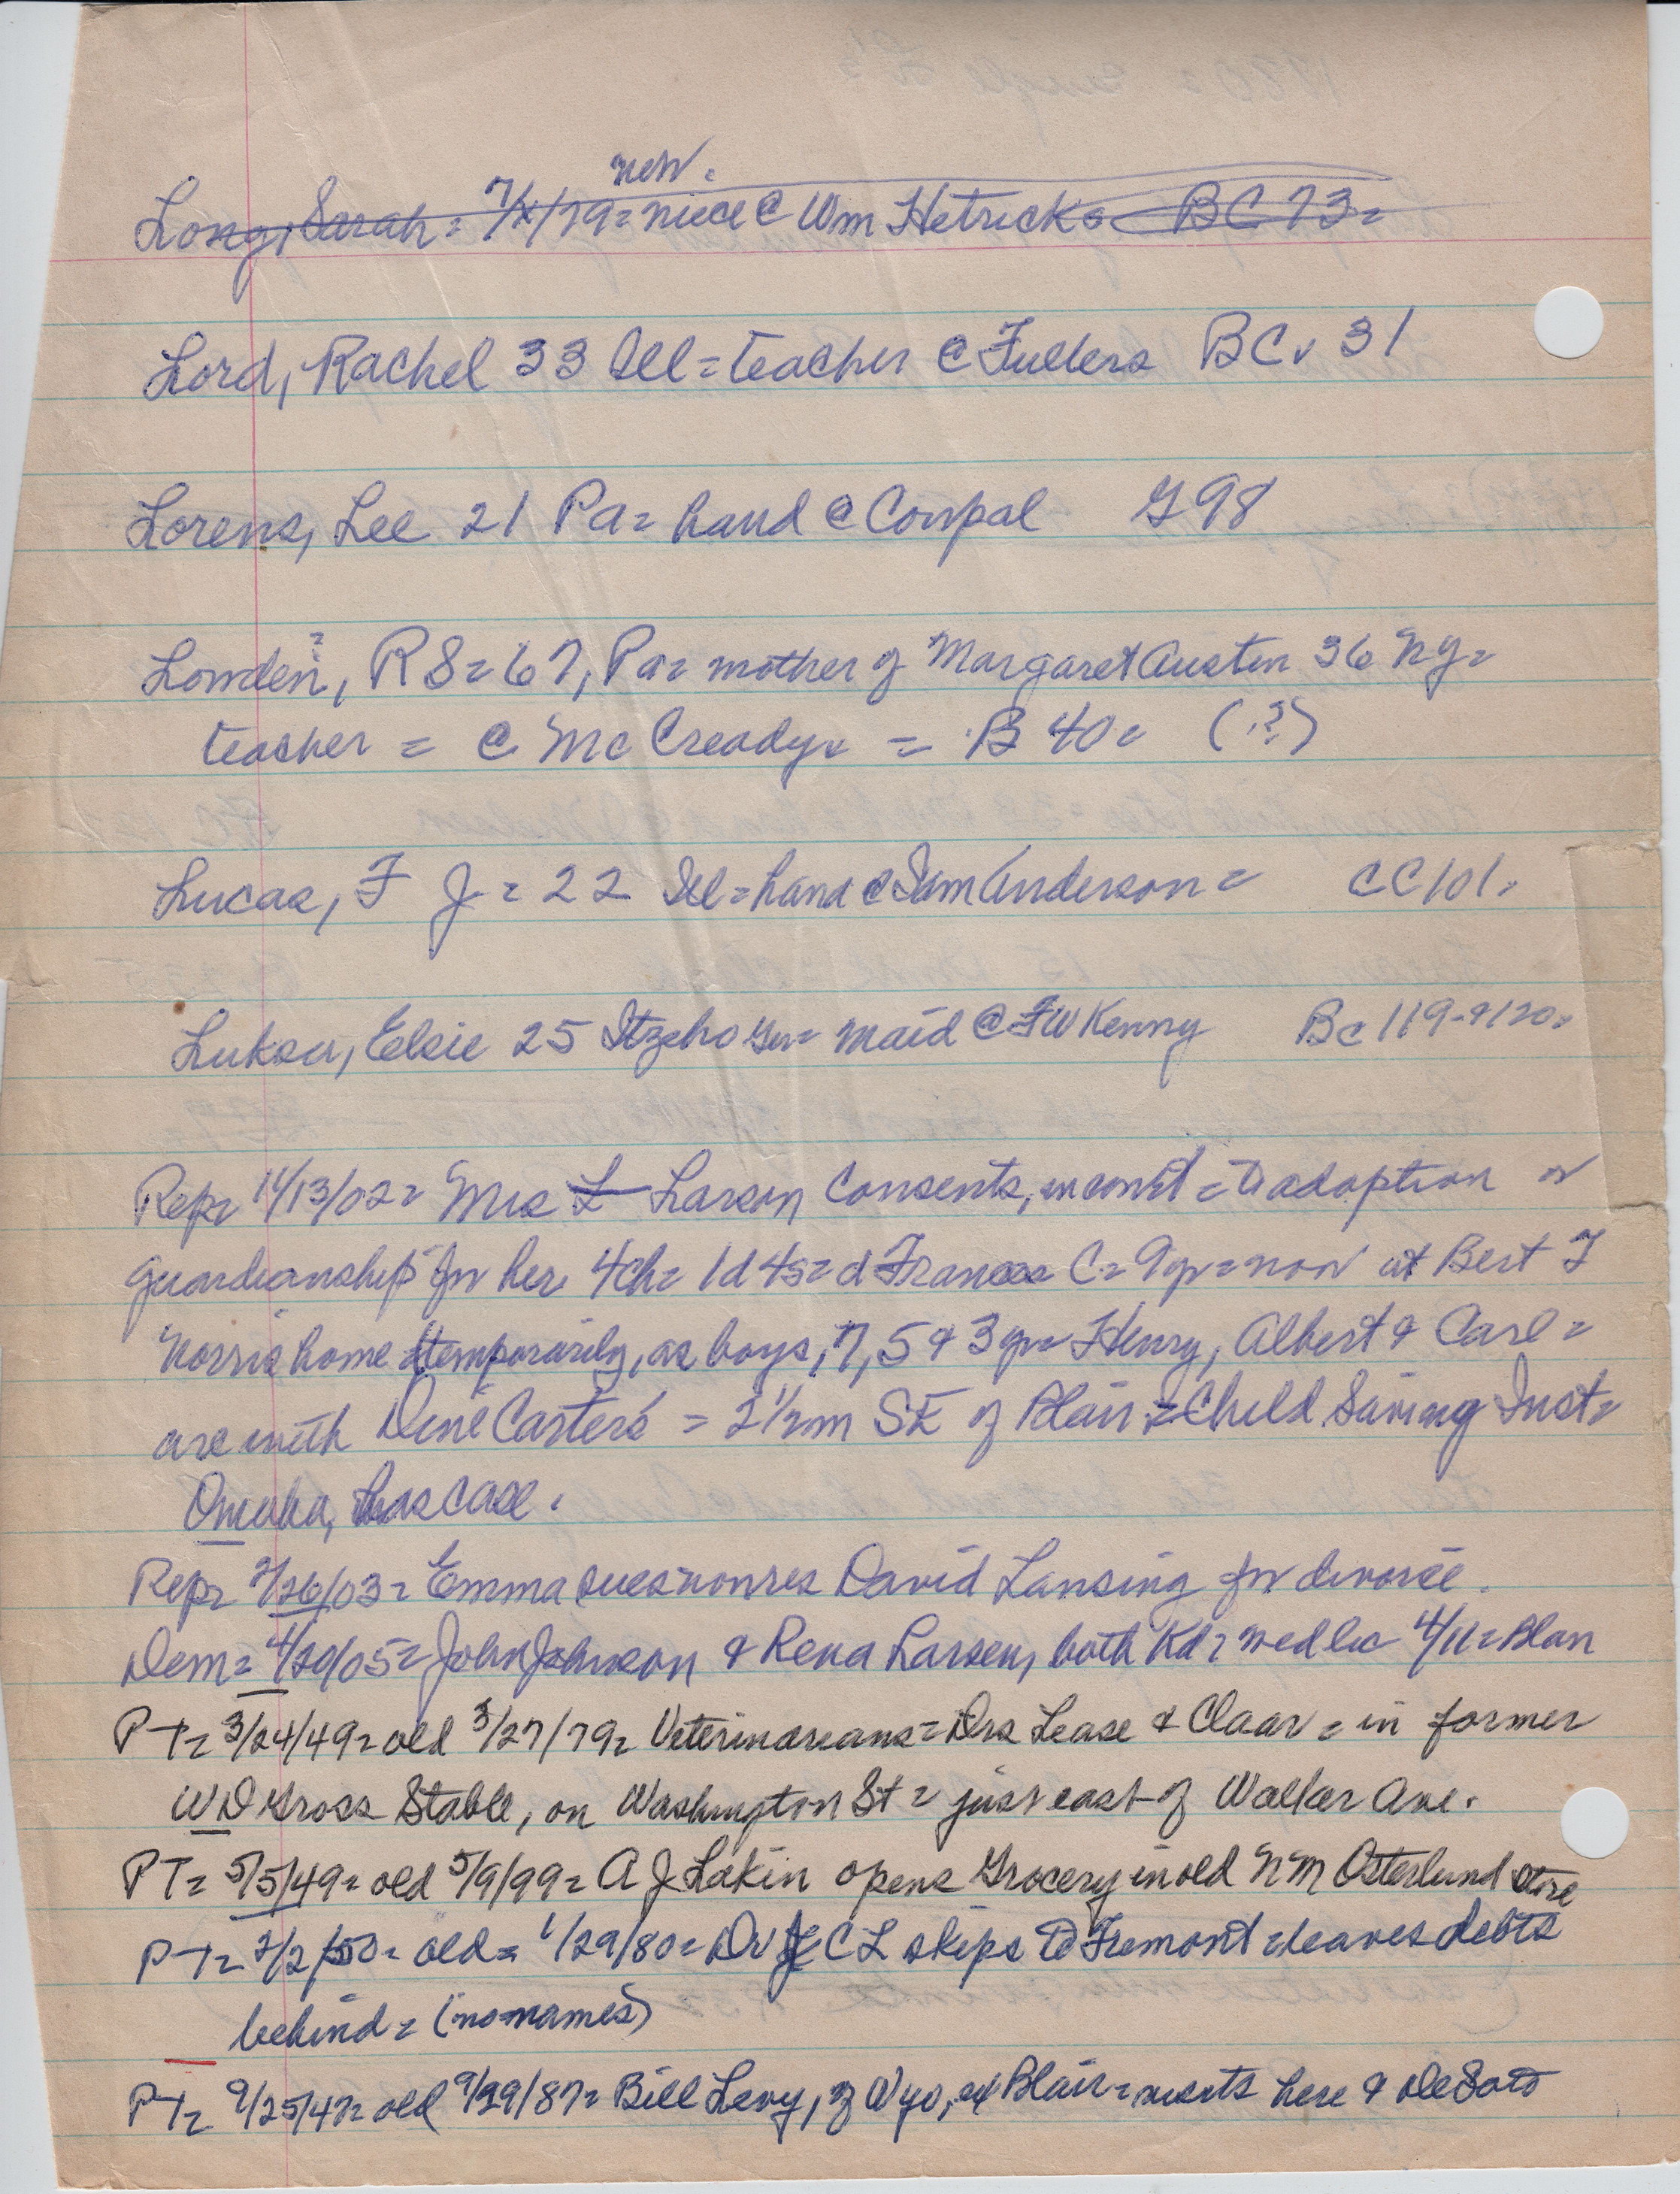 new.
Long, Sarah = 7/x/79 = niece @ Wm Hetricks BC 73 =
Lord, Rachel 33 Ill = teacher @ Fullers BC. 31
Lorens, Lee 21 Pa = hand @ Compal G 98
Lowden, R S = 67, Pa = mother of Margaret Austen 36 NY =
teacher = @ McCreadys = B 40 = (?)
Lucas, F J = 22 Ill = hand @ Sam Anderson = CC 101.
Luksa, Elsie 25 Itzeho Ger = maid @ FW Kenny BC 119 - & 120 =
Rep = 11/13/02 = Mrs L Larson consents, in court = to adoption or
guardianship for her 4ch = 1d 4s = d Frances C = 9yr = now at Bert T
Norris home temporarily, as boys, 7, 5 & 3 yr = Henry, Albert & Carl =
are with Carters = 2 1/2 m SE of Blair = Child Saving Inst =
Omaha, has case.
Rep = 2/26/03 = Emma sues nonres David Lansing for divorce.
Dem = 4/20/05 = John Johnson & Rena Larsen, both Kd = wed lic 4/11 = Blair
PT = 3/24/49 = old 3/27/79 = Veterinareans = Drs Lease & Claar = in former
W D Gross Stable, on Washington St = just east of Walker Ave.
PT = 5/5/49 = old 5/9/99 = A J Lakin opens Grocery in old N M Osterlund store
PT = 2/2/50 = old = 1/29/80 = Dr C L skips to Fremont = leaves debts
behind = (no names)
PT = 9/25/47 = old 9/29/87 = Bill Levy, of Wyo, ex Blair = visits here & DeSoto